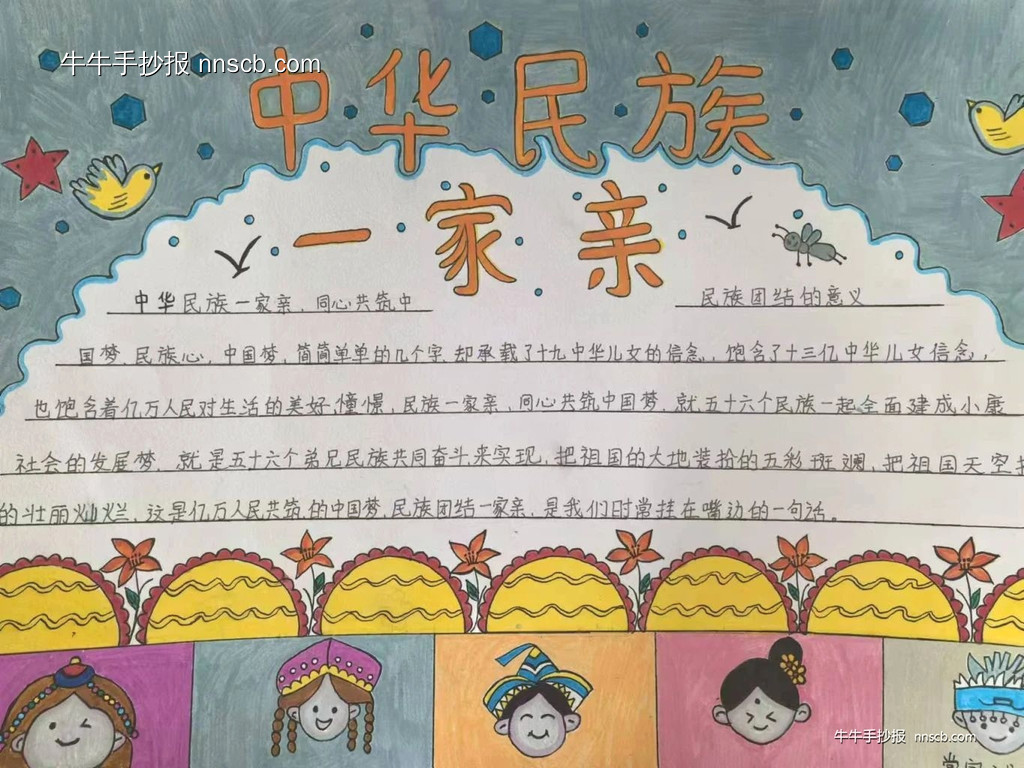 牛牛手抄报 nnscb.com
中华民族
一家亲
中华民族一家亲、同心共筑中
民族团结的意义
国梦、民族心,中国梦,简简单单的几个字,却承载了十九中华儿女的信念,饱含了十三亿中华儿女信念,
也饱含着亿万人民对生活的美好憧憬,民族一家亲、同心共筑中国梦,就五十六个民族一起全面建成小康
社会的发展梦,就是五十六个弟兄民族共同奋斗来实现,把祖国的大地装扮的五彩斑斓,把祖国天空
的壮丽灿烂,这是亿万人民共筑的中国梦,民族团结一家亲,是我们日常挂在嘴边的一句话。
牛牛手抄报 nnscb.com